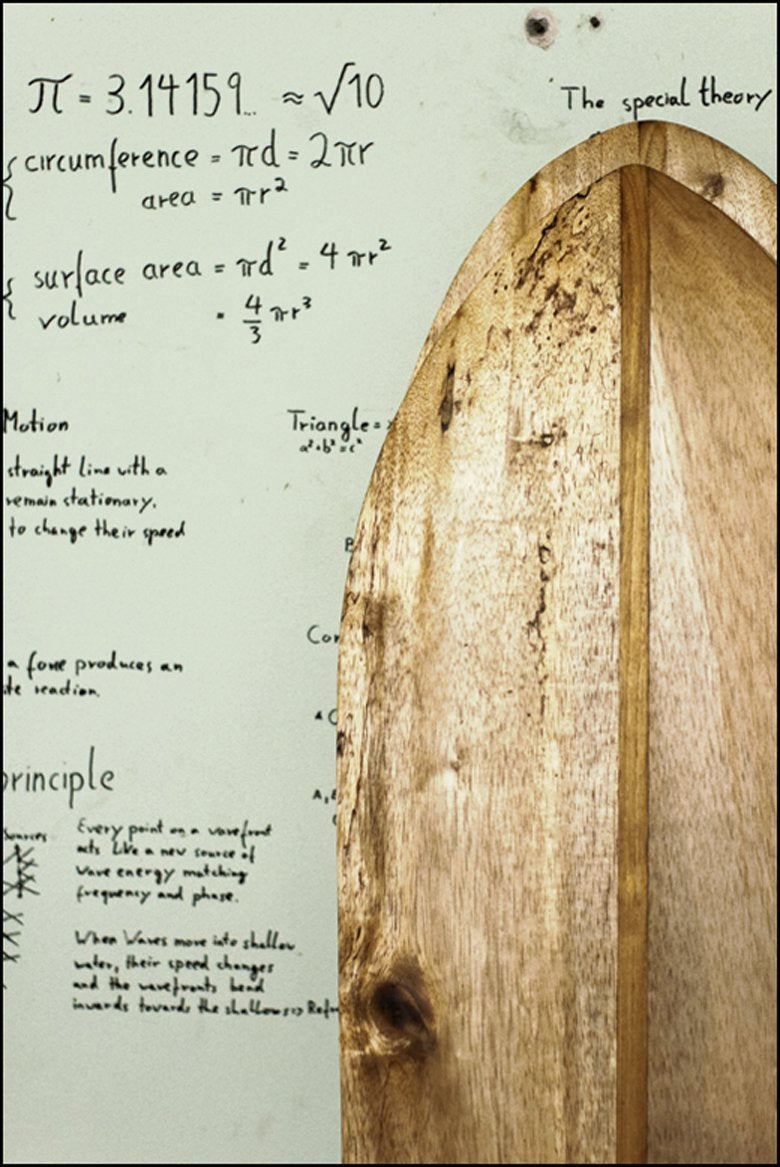 π = 3.14159... ≈ √10
The special theory
circumference = πd = 2πr
area = πr²
surface area = πd² = 4πr²
volume = 4/3 πr³
Motion
straight line with a
remain stationary.
to change their speed
Triangle =
a²+b²=c²
a force produces an
reaction.
principle
Sources
Every point on a wavefront
acts like a new source of
wave energy matching
frequency and phase.
When Waves move into shallow
water, their speed changes
and the wavefronts bend
inwards towards the shallows =>